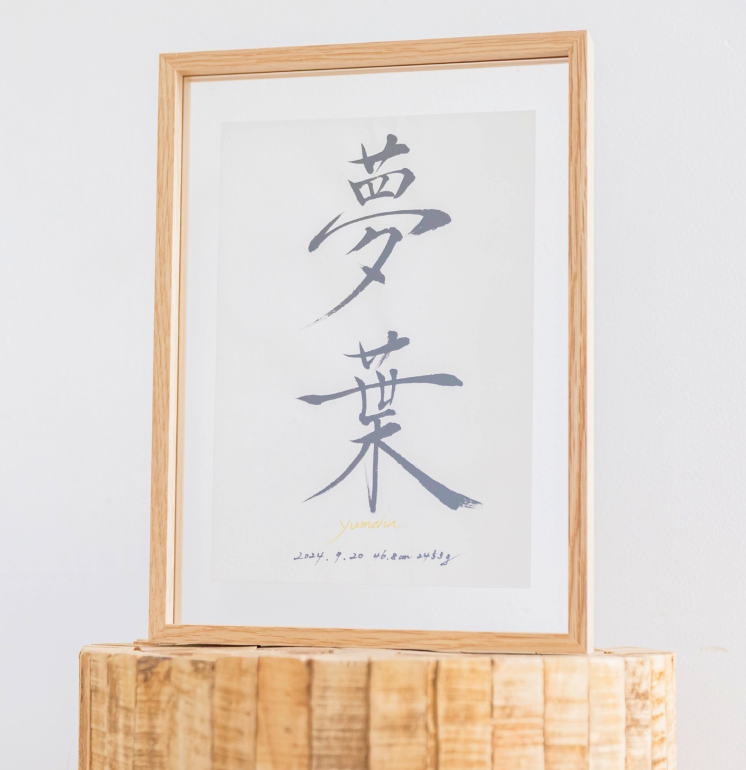 夢
葉
yumeha
2024. 9. 20 46.8cm 2433g